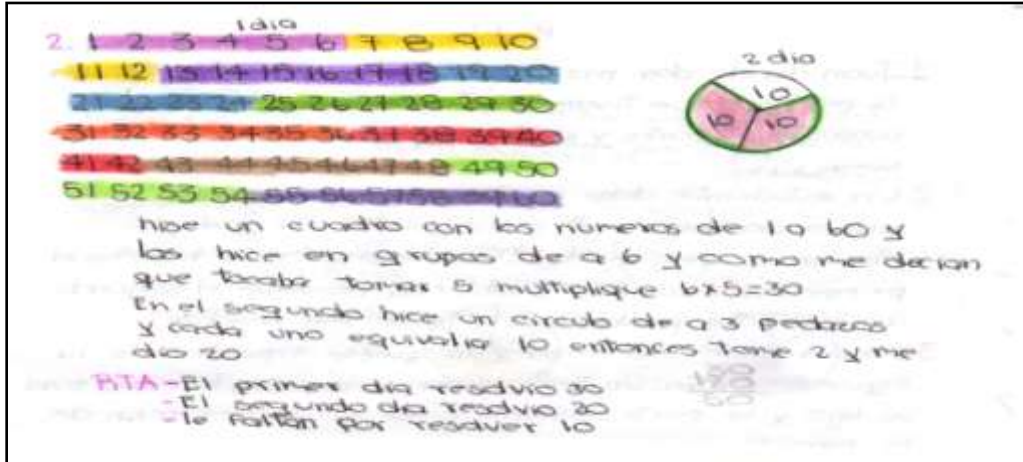 1 dia
2. 1 2 3 4 5 6 7 8 9 10
11 12 13 14 15 16 17 18 19 20
21 22 23 24 25 26 27 28 29 30
31 32 33 34 35 36 37 38 39 40
41 42 43 44 45 46 47 48 49 50
51 52 53 54 55 56 57 58 59 60
2 dia
10
10 10
hise un cuadro con los numeros de 1 a 60 y
los hice en grupos de a 6 y como me decian
que tocaba tomar 5 multiplique 6x5=30
En el segundo hice un circulo de a 3 pedazos
y cada uno equivalia 10 entonces tome 2 y me
dio 20
RTA-El primer dia resolvio 30
-El segundo dia resolvio 20
-le faltan por resolver 10